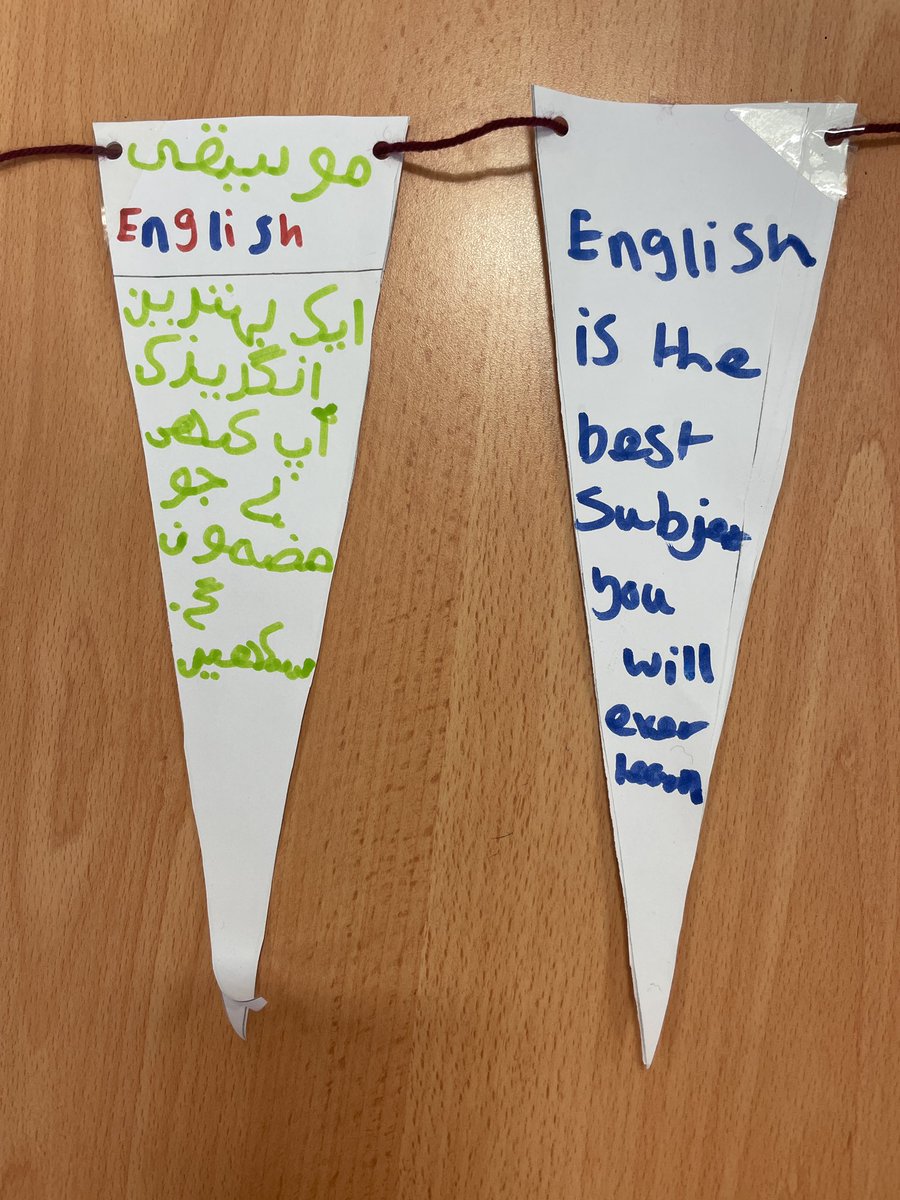 موسیقی
English
ایک بہترین
انگریزی
آپ کبھی
ہے جو
مضمون
سکھیں
English
is the
best
Subject
you
will
ever
learn